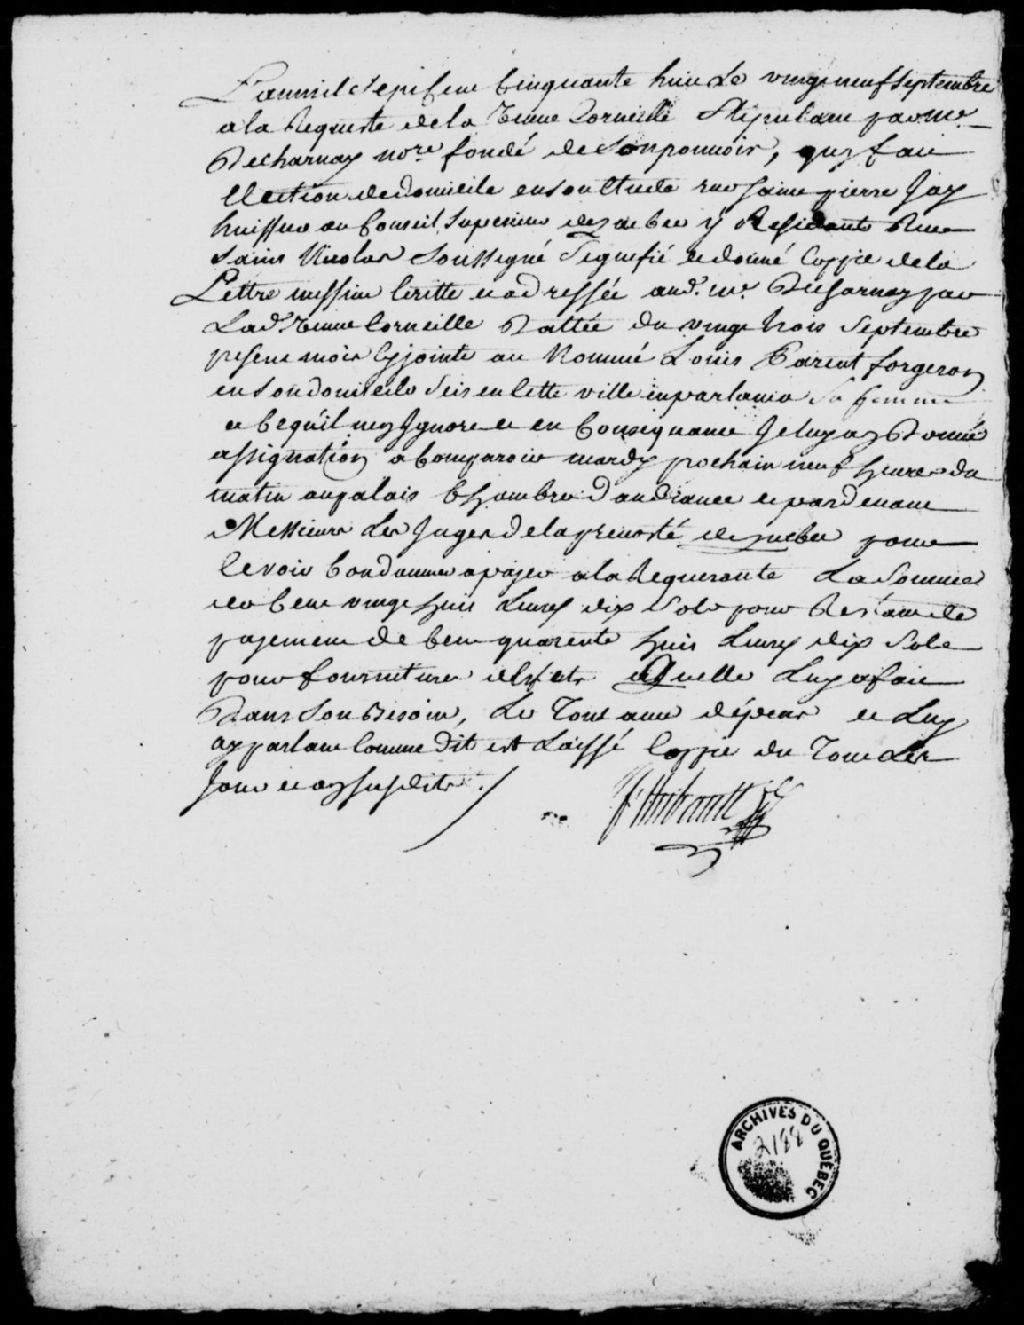 L'an mil sept cent Cinquante huit Le vingt neuf septembre
a la Requeste de la veuve Corneille Stipulant par me.
Decharnay nore. fondé de Son pouvoir, quy fait
Election de domicile en son Etude rue saint pierre Jay
huissier au Conseil Superieur de quebec y Residante Rue
saint Nicolas Soussigné Signifié et donné Coppie de la
Lettre missive Ecritte et adressée aud. me. Decharnay par
Lad. veuve Corneille Dattée du vingt trois Septembre
present mois Cy jointe au Nommé Louis Parent forgeron
en son domicile Seis en Cette ville en parlant a Sa femme
a Ce qu'il nen Ignore et en Consequance Je luy ay Donné
assignation a Comparoir mardy prochain neuf heures du
matin au palais Chambre d'audiance et pardevant
Messieurs Les Juges de la prevosté de quebec pour
Ce voir Condamner a payer a la Requerante La Somme
de Cent vingt huit Livres dix Sols pour Restant de
payement de Cent quarente huit Livres dix Sols
pour fourniture d'effets a Quelle Luy a fait
Dans Son Besoin, Le Tout avec dépens et Luy
ay parlant Comme dit est Laissé Coppie du Tout Les
Jour et an susdits ./
Thibault
ARCHIVES DU QUÉBEC
2188